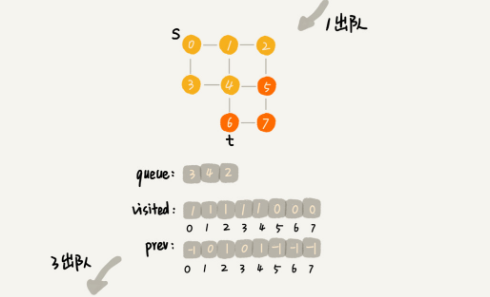 1出队
S 0 1 2
3 4 5
6 7
t
queue: 3 4 2
visited: 1 1 1 1 1 0 0 0
0 1 2 3 4 5 6 7
prev: -1 0 1 0 1 -1 -1 -1
0 1 2 3 4 5 6 7
3出队